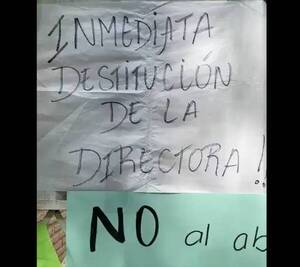 INMEDIATA
DESTITUCIÓN
DE LA
DIRECTORA!
NO al ab